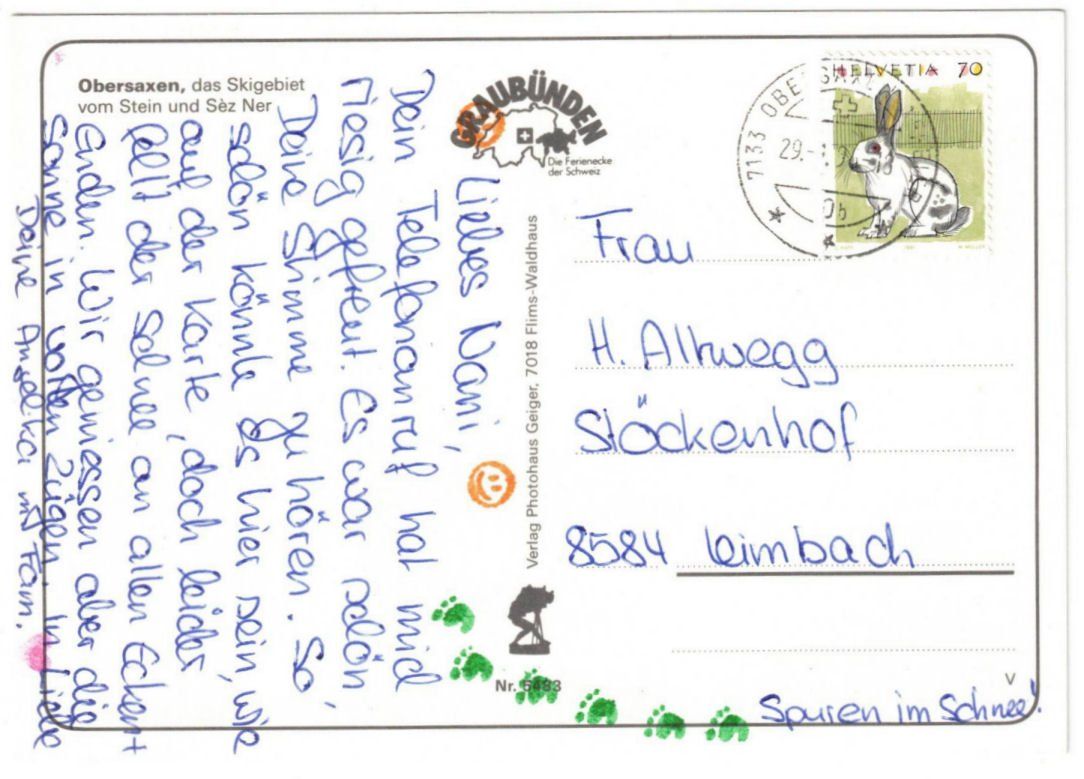 Obersaxen, das Skigebiet
vom Stein und Sèz Ner
GRAUBÜNDEN
Die Ferienecke
der Schweiz
HELVETIA 70
7133 OBERSAXEN
29.
Liebes Nani,
Dein Telefonanruf hat mich
riesig gefreut. Es war schön
Deine Stimme zu hören. So
schön könnte es hier sein, wie
auf der Karte, doch leider
fehlt der Schnee an allen Ecken +
Enden. Wir geniessen aber die
Sonne in vollen Zügen. In Liebe
Deine Angelika mit Fam.
Verlag Photohaus Geiger, 7018 Flims-Waldhaus
Nr. 6483
Frau
H. Altwegg
Stöckenhof
8584 Leimbach
V
Spuren im Schnee!